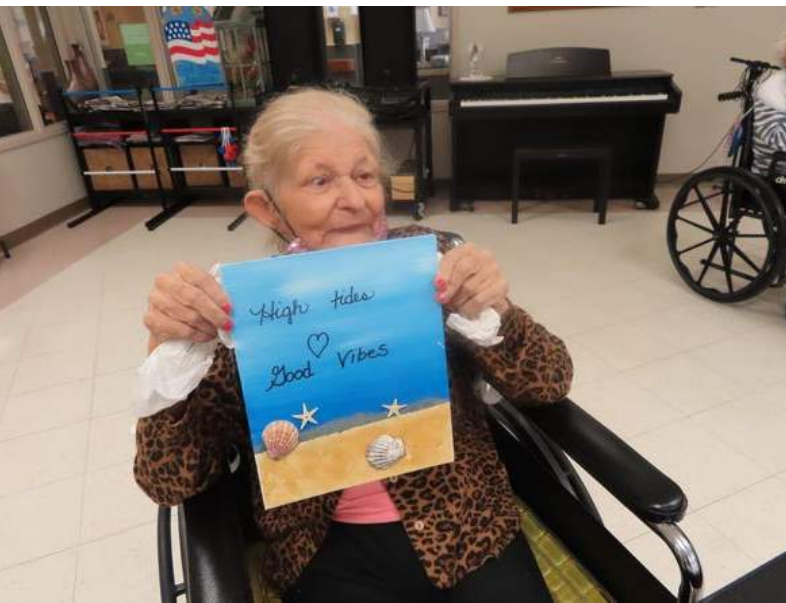 High tides
Good Vibes